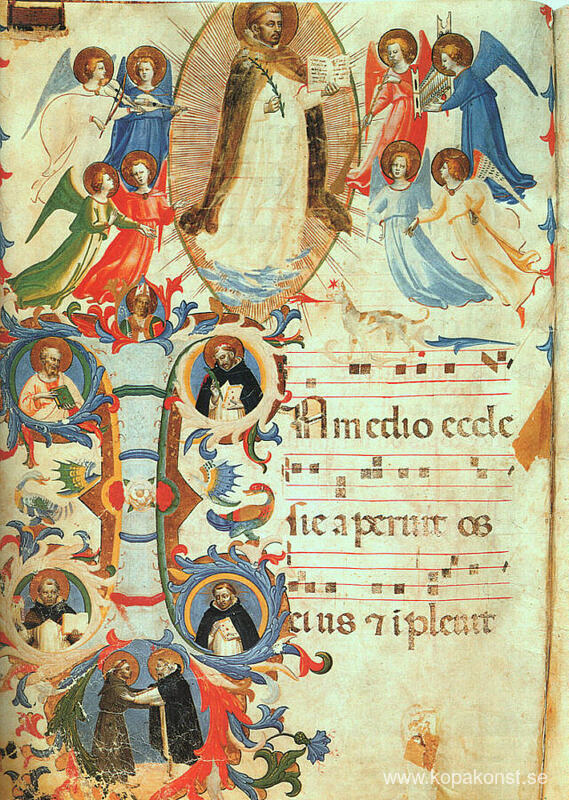 IN medio eccle
sie aperuit os
eius ⁊ ipleuit
www.kopakonst.se